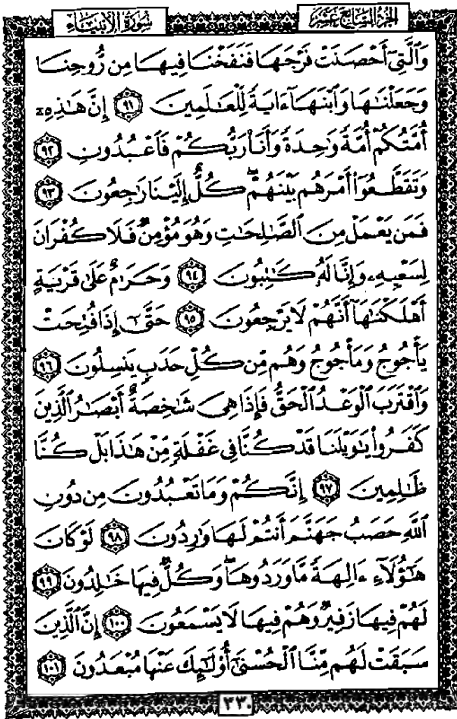 الجزء السابع عشر
سورة الأنبياء
وَالَّتِىٓ أَحْصَنَتْ فَرْجَهَا فَنَفَخْنَا فِيهَا مِن رُّوحِنَا
وَجَعَلْنَـٰهَا وَٱبْنَهَآ ءَايَةً لِّلْعَـٰلَمِينَ ٩١ إِنَّ هَـٰذِهِۦٓ
أُمَّتُكُمْ أُمَّةً وَٰحِدَةً وَأَنَا۠ رَبُّكُمْ فَٱعْبُدُونِ ٩٢
وَتَقَطَّعُوٓا۟ أَمْرَهُم بَيْنَهُمْ ۖ كُلٌّ إِلَيْنَا رَٰجِعُونَ ٩٣
فَمَن يَعْمَلْ مِنَ ٱلصَّـٰلِحَـٰتِ وَهُوَ مُؤْمِنٌ فَلَا كُفْرَانَ
لِسَعْيِهِۦ وَإِنَّا لَهُۥ كَـٰتِبُونَ ٩٤ وَحَرَٰمٌ عَلَىٰ قَرْيَةٍ
أَهْلَكْنَـٰهَآ أَنَّهُمْ لَا يَرْجِعُونَ ٩٥ حَتَّىٰٓ إِذَا فُتِحَتْ
يَأْجُوجُ وَمَأْجُوجُ وَهُم مِّن كُلِّ حَدَبٍ يَنسِلُونَ ٩٦
وَٱقْتَرَبَ ٱلْوَعْدُ ٱلْحَقُّ فَإِذَا هِىَ شَـٰخِصَةٌ أَبْصَـٰرُ ٱلَّذِينَ
كَفَرُوا۟ يَـٰوَيْلَنَا قَدْ كُنَّا فِى غَفْلَةٍ مِّنْ هَـٰذَا بَلْ كُنَّا
ظَـٰلِمِينَ ٩٧ إِنَّكُمْ وَمَا تَعْبُدُونَ مِن دُونِ
ٱللَّهِ حَصَبُ جَهَنَّمَ أَنتُمْ لَهَا وَٰرِدُونَ ٩٨ لَوْ كَانَ
هَـٰٓؤُلَآءِ ءَالِهَةً مَّا وَرَدُوهَا ۖ وَكُلٌّ فِيهَا خَـٰلِدُونَ ٩٩
لَهُمْ فِيهَا زَفِيرٌ وَهُمْ فِيهَا لَا يَسْمَعُونَ ١٠٠ إِنَّ ٱلَّذِينَ
سَبَقَتْ لَهُم مِّنَّا ٱلْحُسْنَىٰٓ أُو۟لَـٰٓئِكَ عَنْهَا مُبْعَدُونَ ١٠١
٣٣٠